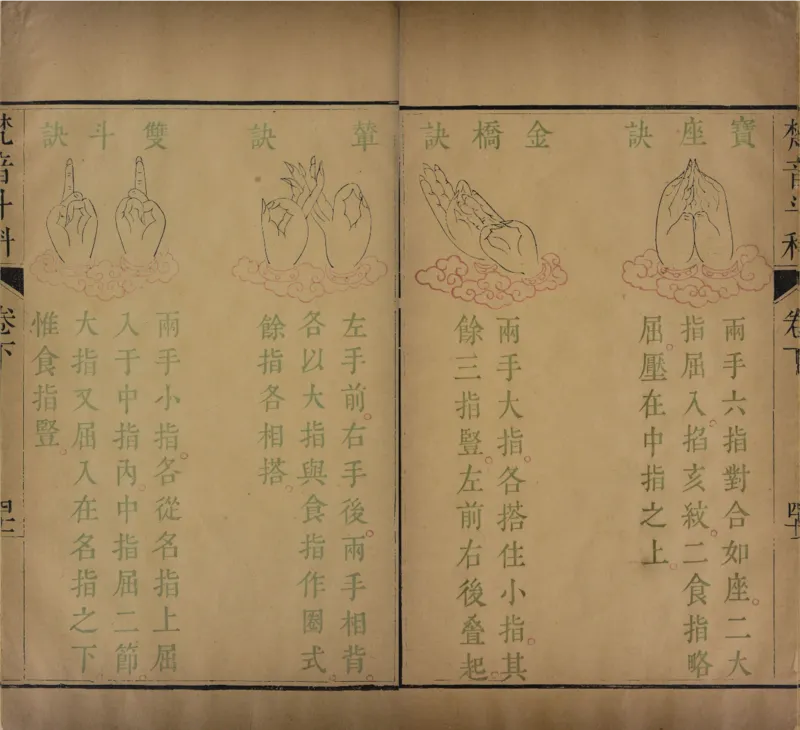 寶座訣
兩手六指對合如座。二大
指屈入掐亥紋。二食指略
屈。壓在中指之上。
金橋訣
兩手大指。各搭住小指。其
餘三指豎。左前右後叠起。
輦訣
左手前。右手後。兩手相背。
各以大指與食指作圈式。
餘指各相搭。
雙斗訣
兩手小指。各從名指上屈
入于中指內。中指屈二節。
大指又屈入在名指之下。
惟食指豎。
梵音斗科
卷下